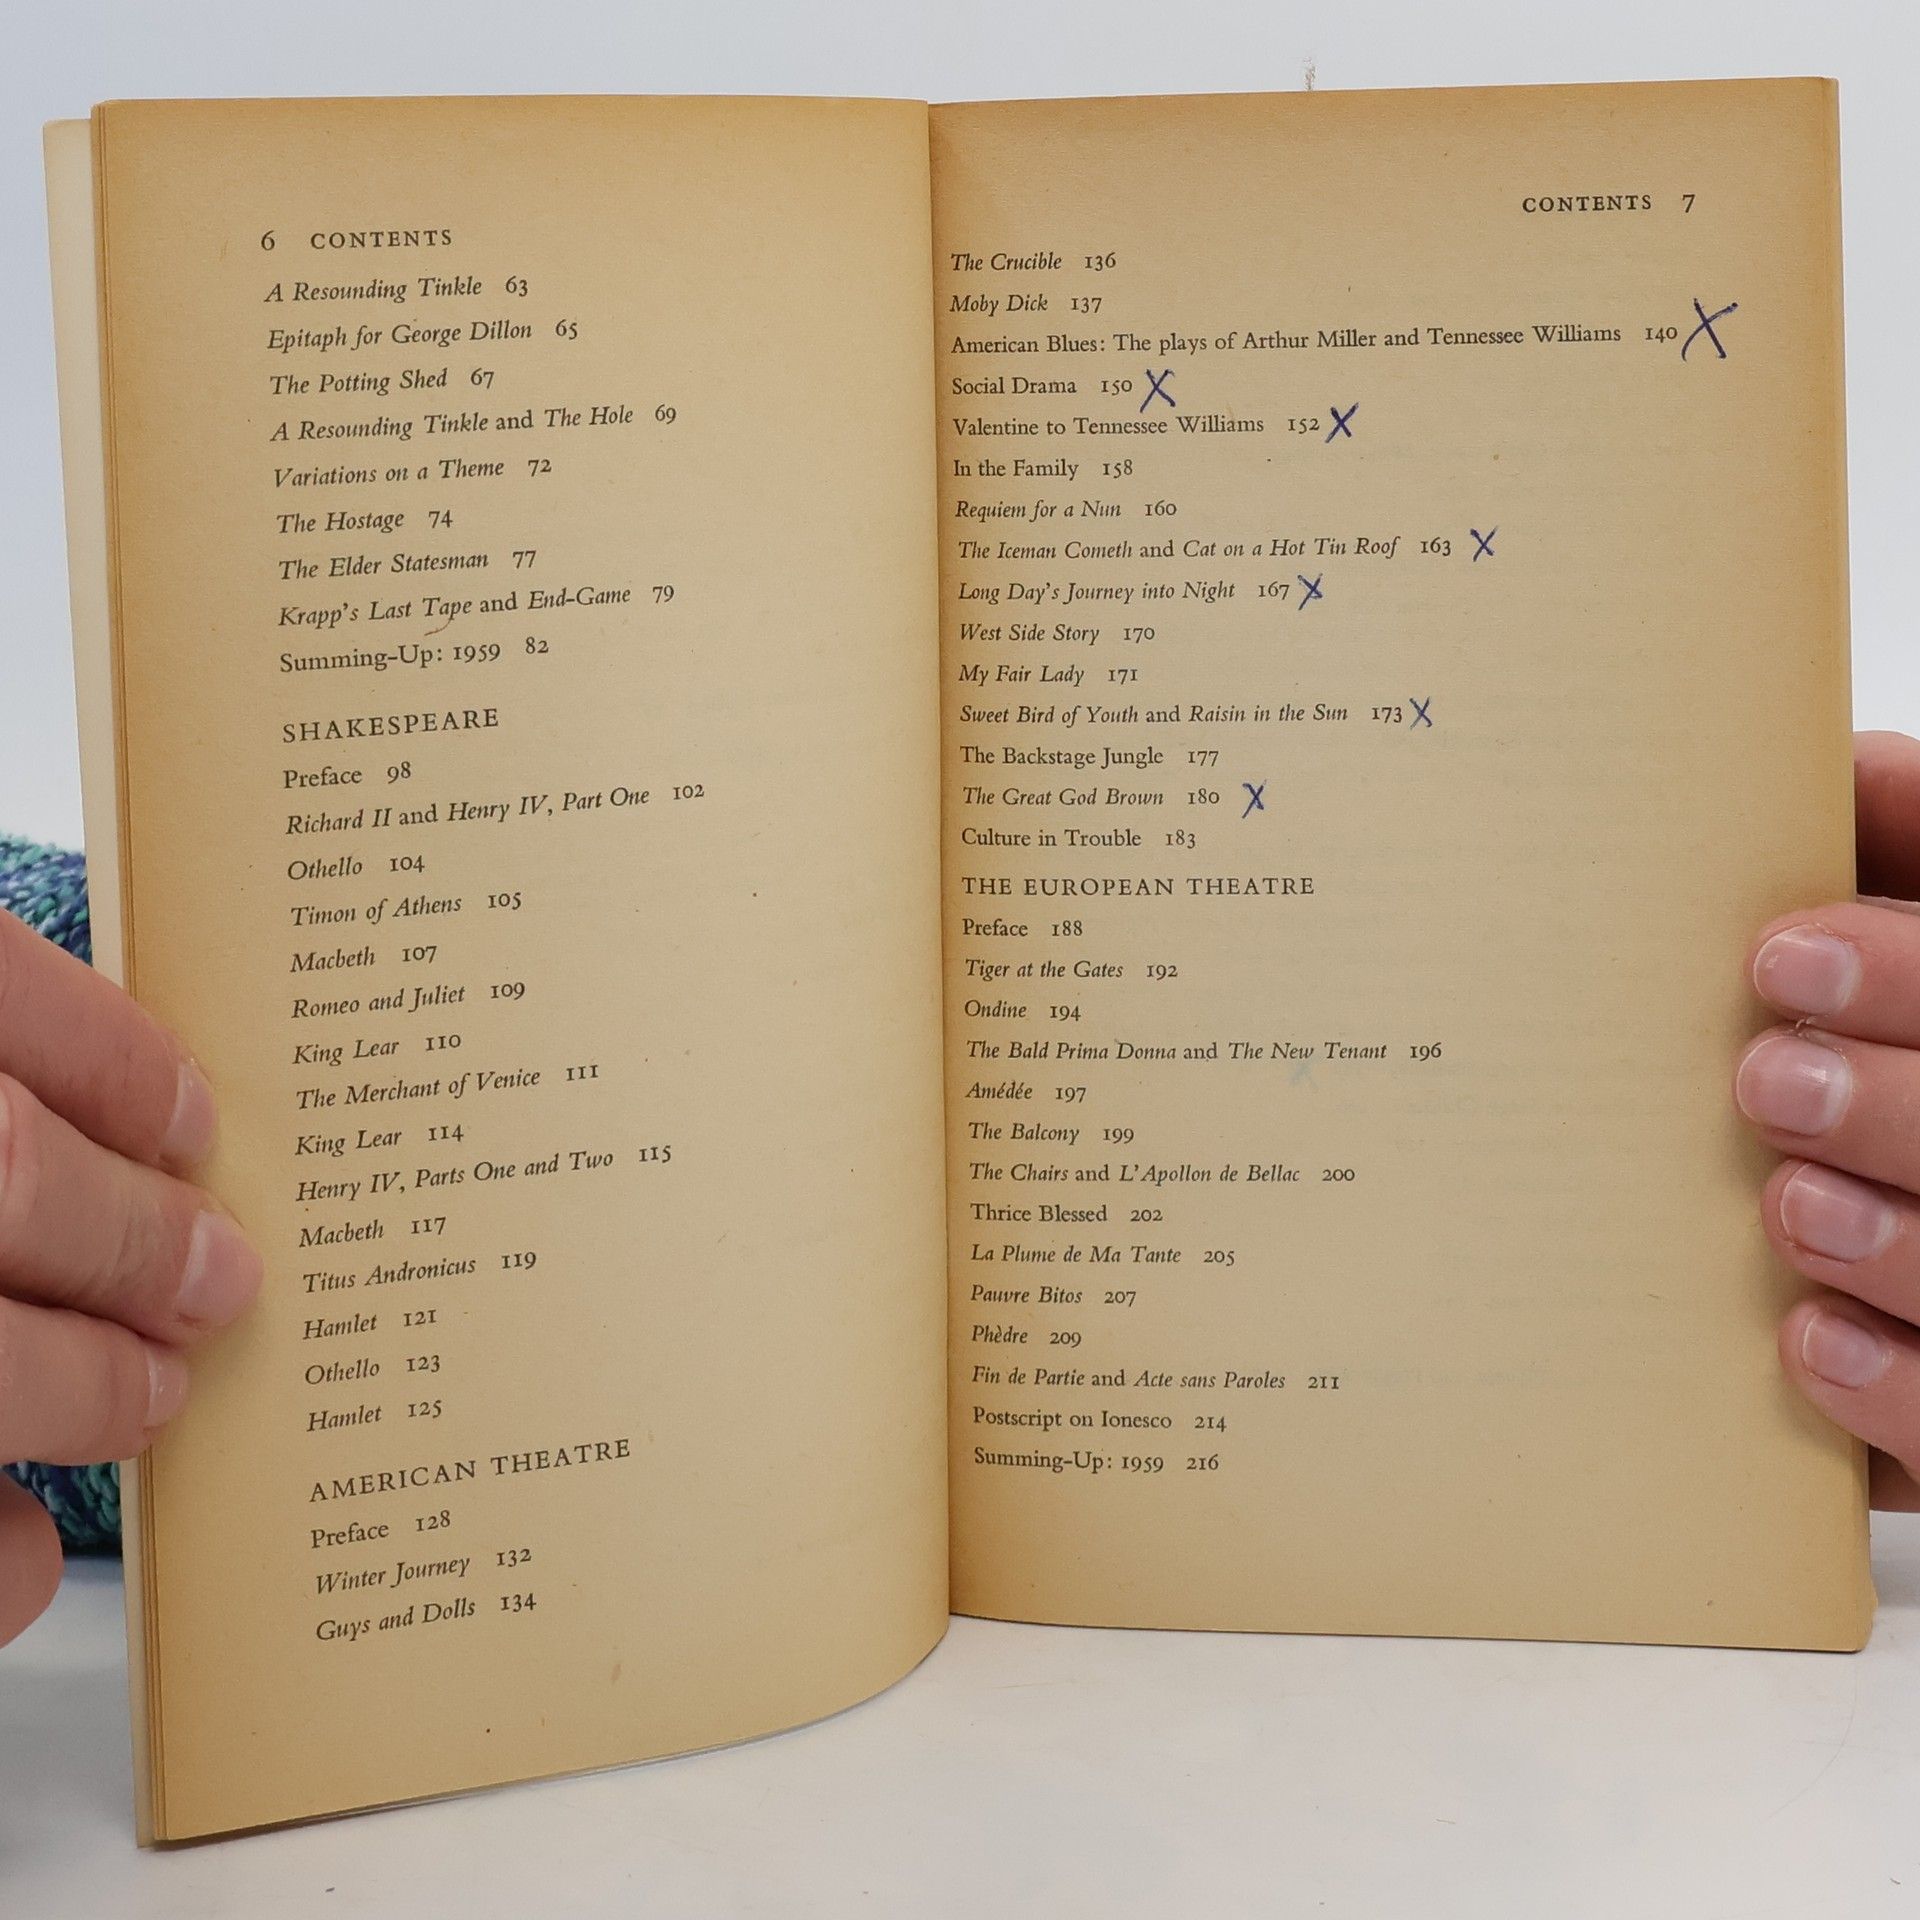 6 CONTENTS
A Resounding Tinkle 63
Epitaph for George Dillon 65
The Potting Shed 67
A Resounding Tinkle and The Hole 69
Variations on a Theme 72
The Hostage 74
The Elder Statesman 77
Krapp's Last Tape and End-Game 79
Summing-Up: 1959 82
SHAKESPEARE
Preface 98
Richard II and Henry IV, Part One 102
Othello 104
Timon of Athens 105
Macbeth 107
Romeo and Juliet 109
King Lear 110
The Merchant of Venice 111
King Lear 114
Henry IV, Parts One and Two 115
Macbeth 117
Titus Andronicus 119
Hamlet 121
Othello 123
Hamlet 125
AMERICAN THEATRE
Preface 128
Winter Journey 132
Guys and Dolls 134
CONTENTS 7
The Crucible 136
Moby Dick 137
American Blues: The plays of Arthur Miller and Tennessee Williams 140 X
Social Drama 150 X
Valentine to Tennessee Williams 152 X
In the Family 158
Requiem for a Nun 160
The Iceman Cometh and Cat on a Hot Tin Roof 163 X
Long Day's Journey into Night 167 X
West Side Story 170
My Fair Lady 171
Sweet Bird of Youth and Raisin in the Sun 173 X
The Backstage Jungle 177
The Great God Brown 180 X
Culture in Trouble 183
THE EUROPEAN THEATRE
Preface 188
Tiger at the Gates 192
Ondine 194
The Bald Prima Donna and The New Tenant 196
Amédée 197
The Balcony 199
The Chairs and L'Apollon de Bellac 200
Thrice Blessed 202
La Plume de Ma Tante 205
Pauvre Bitos 207
Phèdre 209
Fin de Partie and Acte sans Paroles 211
Postscript on Ionesco 214
Summing-Up: 1959 216